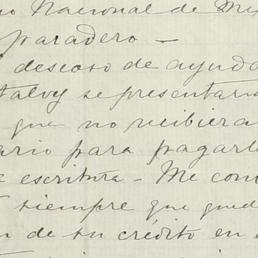 o Nacional de Me
paradero —
deseoso de ayuda
talvez se presentaria
que no recibiera
ario para pagarle
escritura — Me com
siempre que qued
de su crédito en e